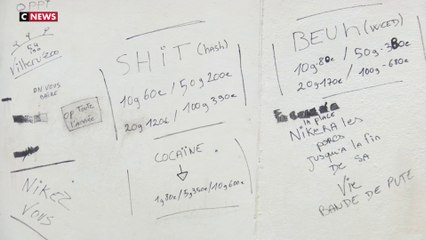 CNEWS
OPPI
Villeru200
ON VOUS
BAISE
OP TOUTE
L'ANNÉE
NIKEZ
VOUS
SHIT (hash)
10g 60€ / 50g 200€
20g 120€ / 100g 390€
COCAÏNE.
1g 80€ / 5g 350€ / 10g 600€
BEUH (WEED)
10g 80€ / 50g 380€
20g 170€ / 100g 680€
la place
NIKERA les
PORCS
JUSQU'A LA FIN
DE SA
VIE
BANDE DE PUTE